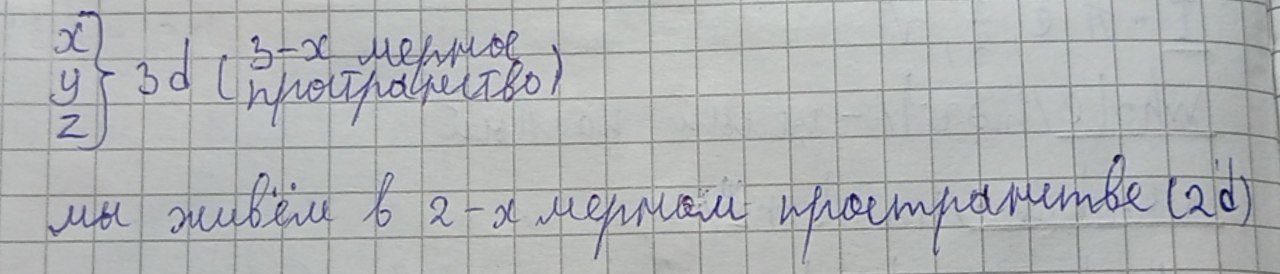 x
y } 3d ( 3-х мерное
z пространство)
мы живём в 2-х мерном пространстве (2d)